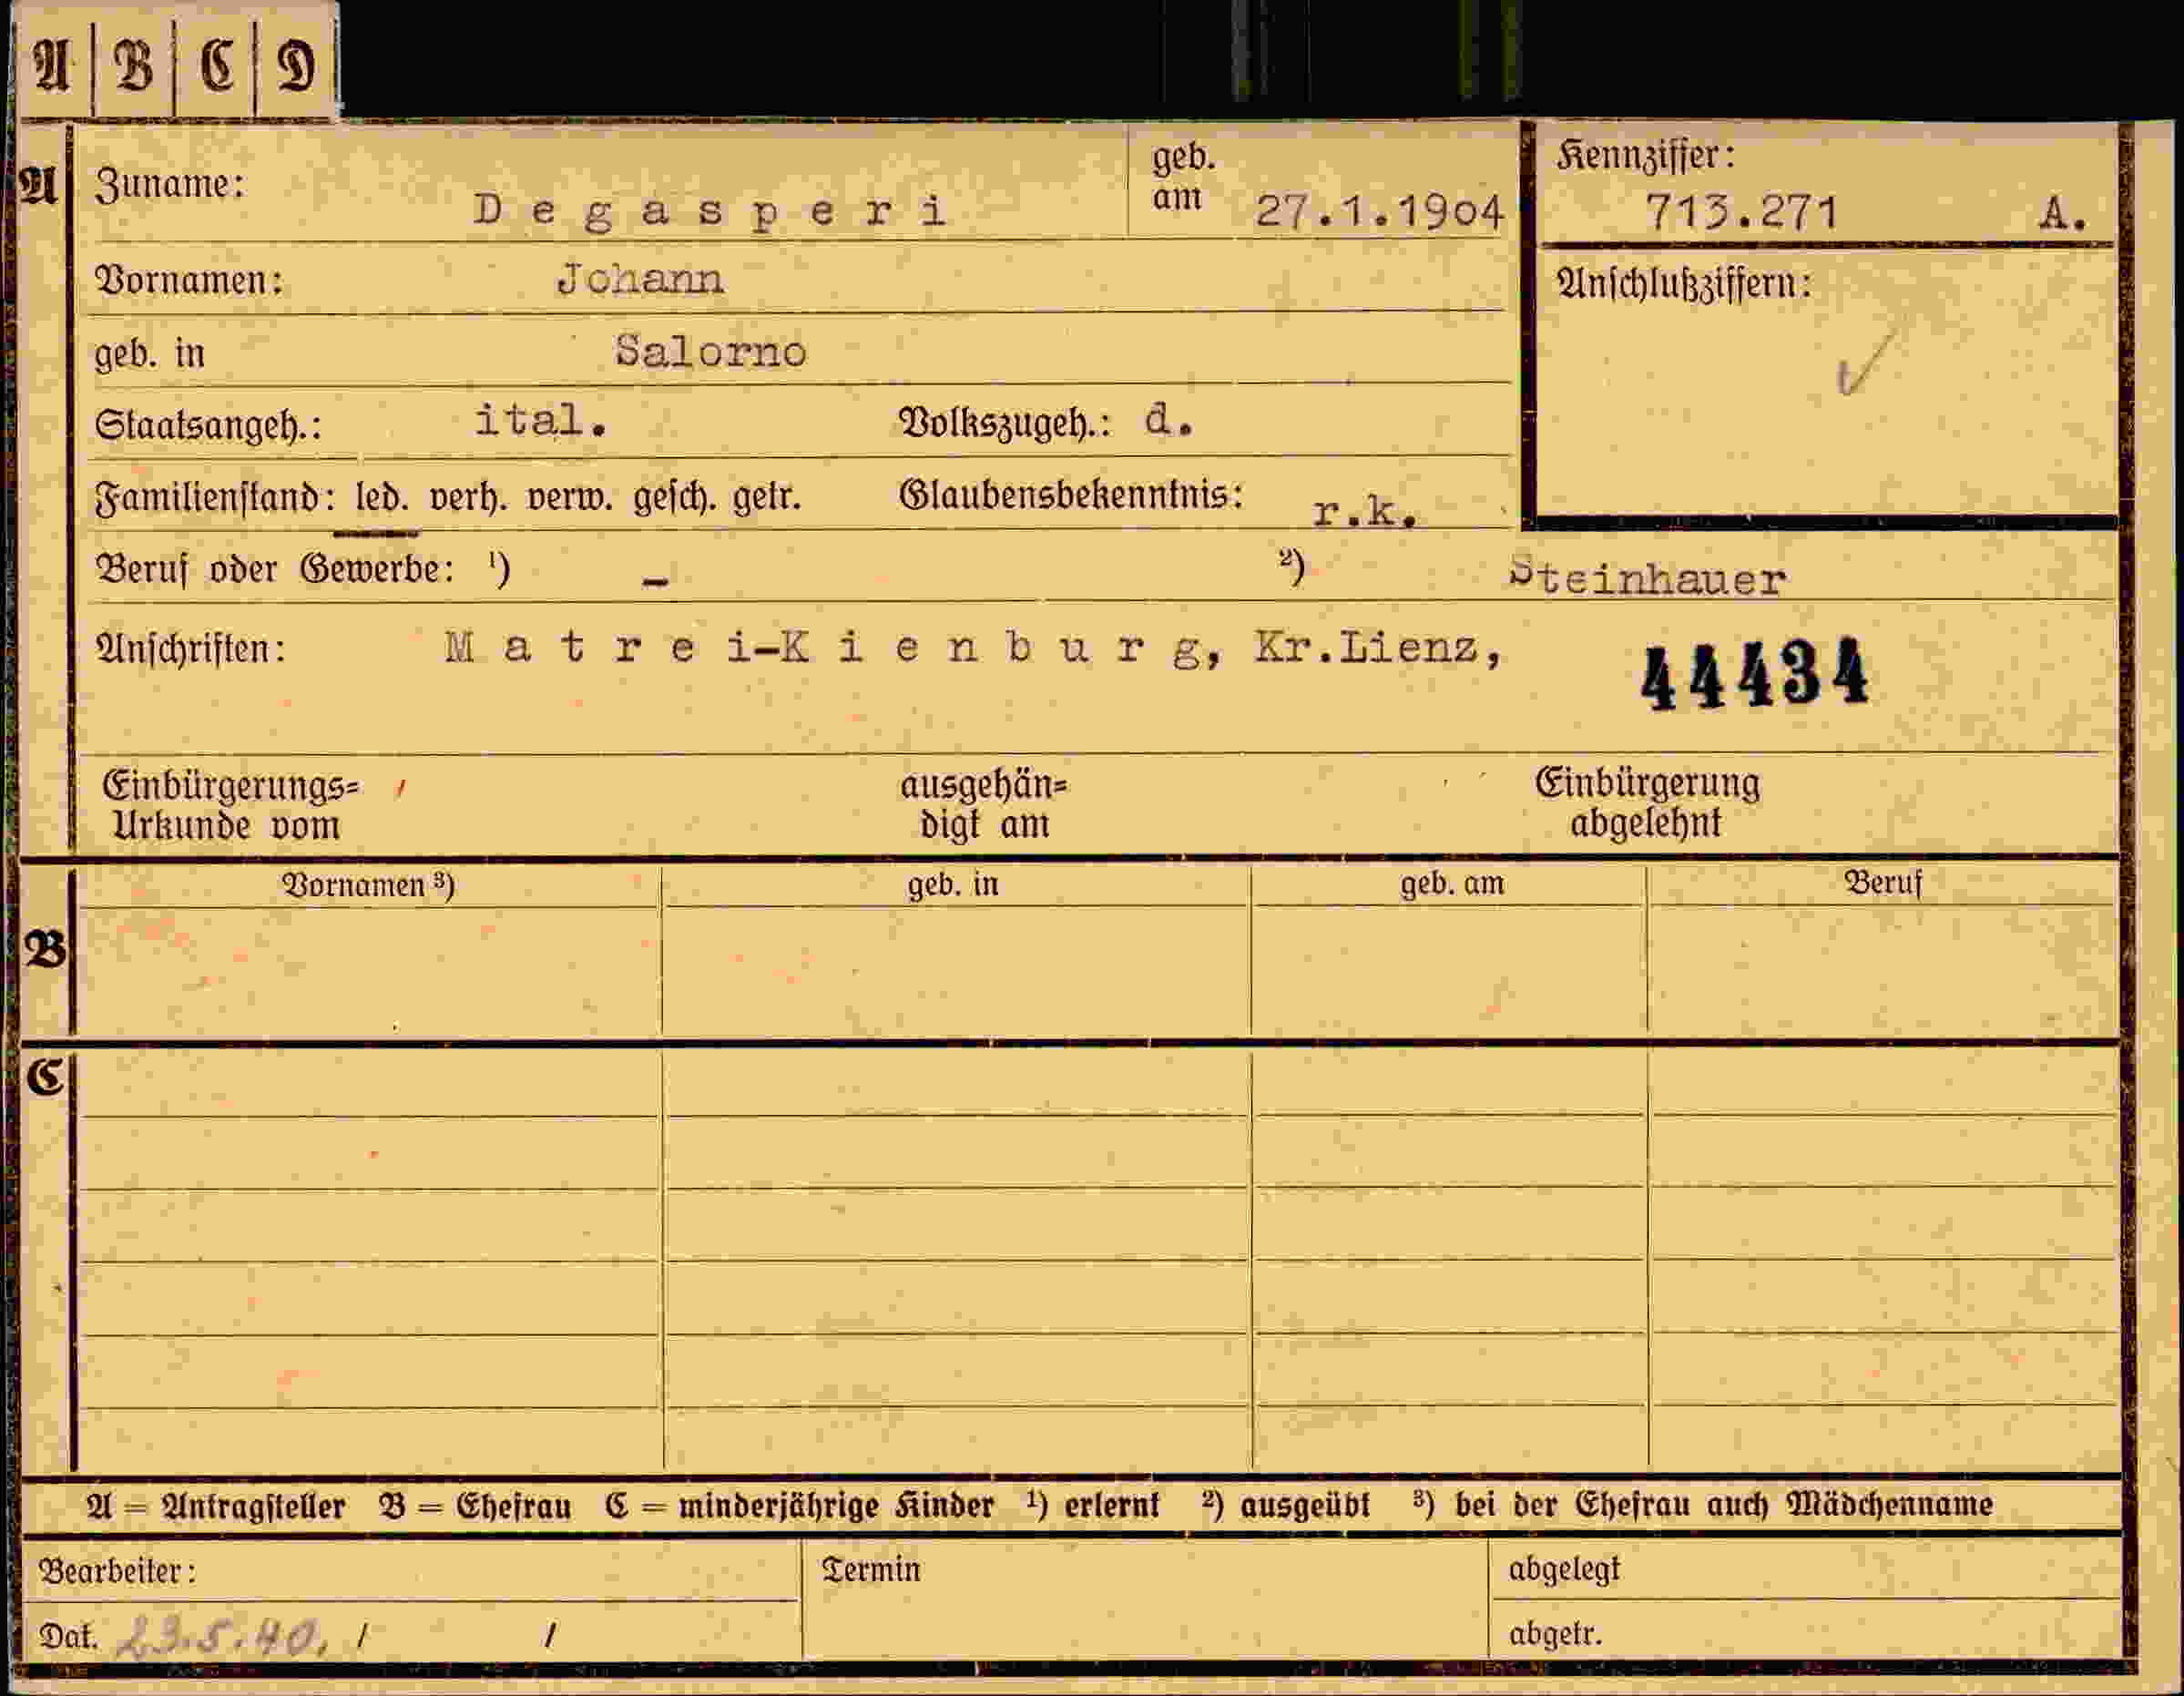 A | B | C | D
A
Zuname: Degasperi
geb. am 27.1.1904
Kennziffer: 713.271 A.
Vornamen: Johann
Anschlußziffern:
geb. in Salorno
Staatsangeh.: ital. Volkszugeh.: d.
Familienstand: led. verh. verw. gesch. getr. Glaubensbekenntnis: r.k.
Beruf oder Gewerbe: ¹) – ²) Steinhauer
Anschriften: Matrei-Kienburg, Kr.Lienz, 44434
Einbürgerungs=
Urkunde vom
ausgehän=
digt am
Einbürgerung
abgelehnt
Vornamen ³) geb. in geb. am Beruf
B
C
A = Antragsteller B = Ehefrau C = minderjährige Kinder ¹) erlernt ²) ausgeübt ³) bei der Ehefrau auch Mädchenname
Bearbeiter: Termin abgelegt
Dat. 23.5.40. / / abgetr.